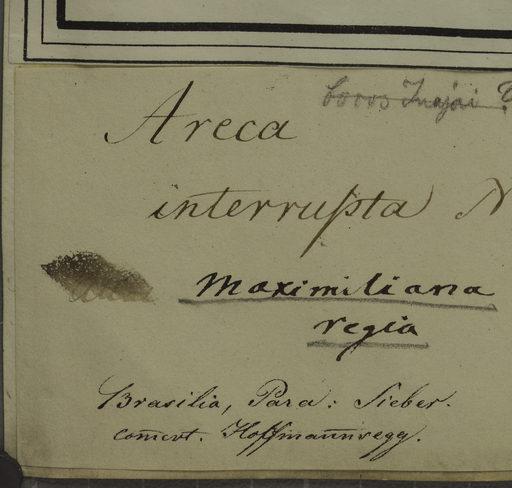 Cocos Inajai
Areca
interrupta N
Maximiliana
regia
Brasilia, Para: Sieber.
comert. Hoffmannregg.